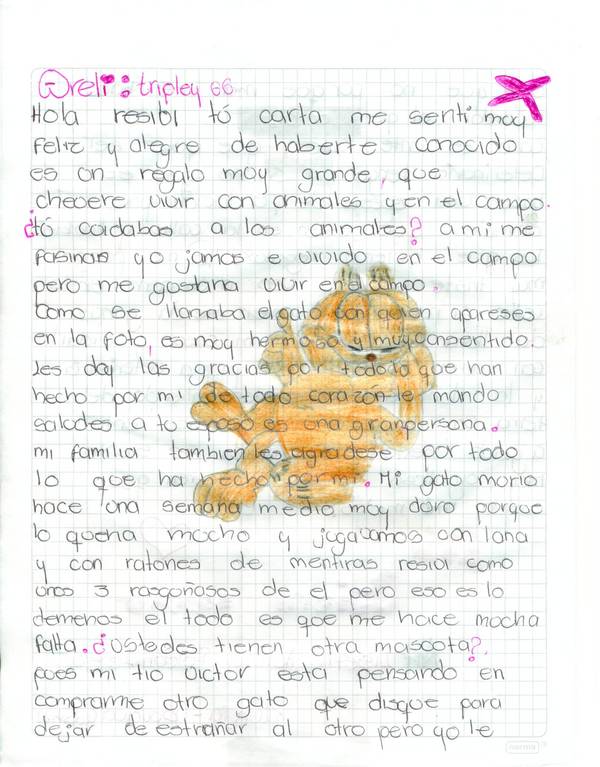 Oreli: tripley 66
Hola resibi tú carta me senti muy
feliz y alegre de haberte conocido
es un regalo muy grande, que
chevere vivir con animales y en el campo.
¿tú cuidabas a los animales? a mi me
fasinan yo jamas e vivido en el campo
pero me gustaria vivir en el campo.
como se llamaba el gato con quien apareses
en la foto, es muy hermoso y muy consentido.
les doy las gracias por todo lo que han
hecho por mi de todo corazón le mando
saludes a tu esposo es una gran persona.
mi familia tambien les agradese por todo
lo que ha hecho por mi. Mi gato murio
hace una semana medio muy duro porque
lo queria mucho y jugabamos con lana
y con ratones de mentiras resivi como
unos 3 rasguñosos de el pero eso es lo
demenos el todo es que me hace mucha
falta. ¿Ustedes tienen otra mascota?.
pues mi tio victor esta pensando en
comprarme otro gato que disque para
dejar de estrañar al otro pero yo le
norma